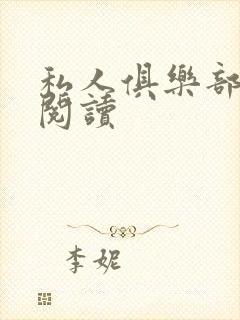 私人俱樂部
閱讀
李妮